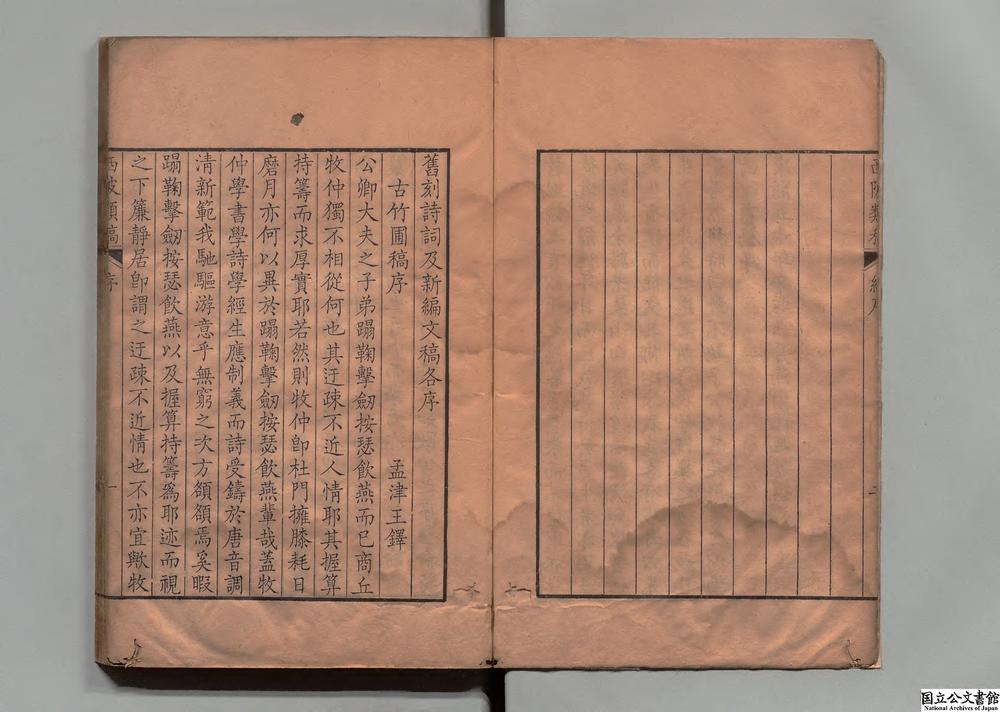 舊刻詩詞及新編文稿各序
古竹圃稿序
孟津王鐸
公卿大夫之子弟蹋鞠擊劒按瑟飲燕而已商丘
牧仲獨不相從何也其迂疎不近人情耶其握算
持籌而求厚實耶若然則牧仲卽杜門擁膝耗日
磨月亦何以異於蹋鞠擊劒按瑟飲燕輩哉蓋牧
仲學書學詩學經生應制義而詩受鑄於唐音調
淸新範我馳驅游意乎無窮之次方頟頟焉奚暇
蹋鞠擊劒按瑟飲燕以及握算持籌爲耶迹而視
之下簾靜居卽謂之迂疎不近情也不亦宜歟牧
西陂類稿
序
一
国立公文書館
National Archives of Japan